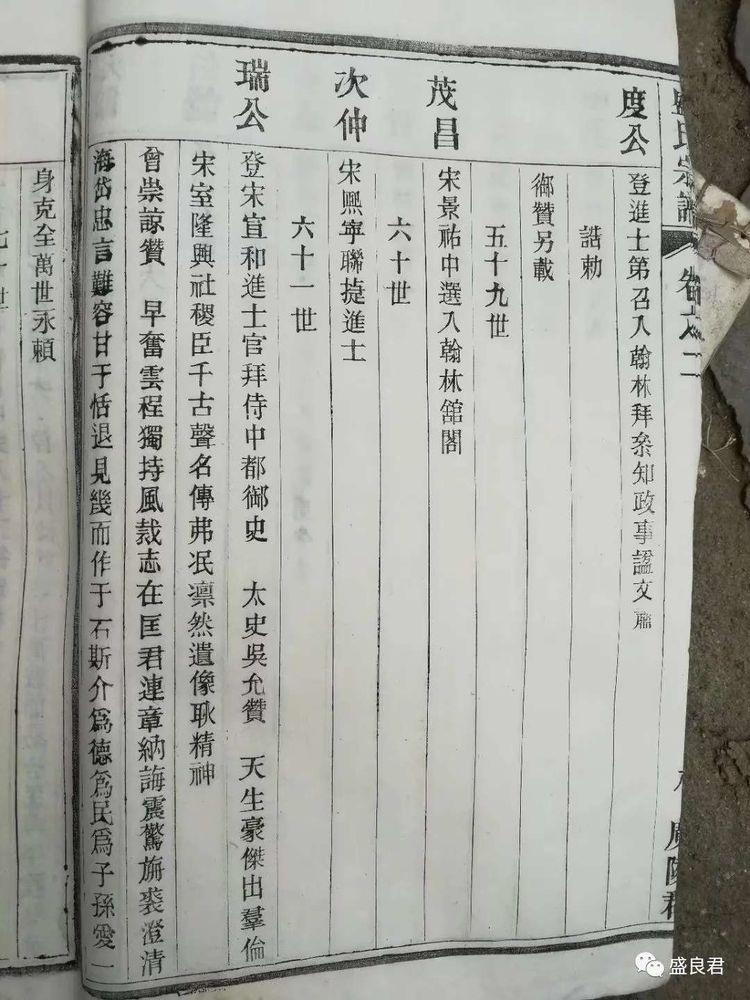 盛氏宗譜 卷之二 廣陵君
度公
登進士第召入翰林拜叅知政事謚文肅
誥勅
御贊另載
五十九世
茂昌
宋景祐中選入翰林舘閣
六十世
次仲
宋熙寧聯捷進士
六十一世
瑞公
登宋宣和進士官拜侍中都御史 太史吳允贊 天生豪傑出羣倫
宋室隆興社稷臣千古聲名傳弗泯凛然遺像耿精神
曾祟諒贊 早奮雲程獨持風裁志在匡君連章納誨震驚旃裘澄清
海岱忠言難容甘于恬退見幾而作于石斯介為德為民為子孫愛一
身克全萬世永頼
盛良君